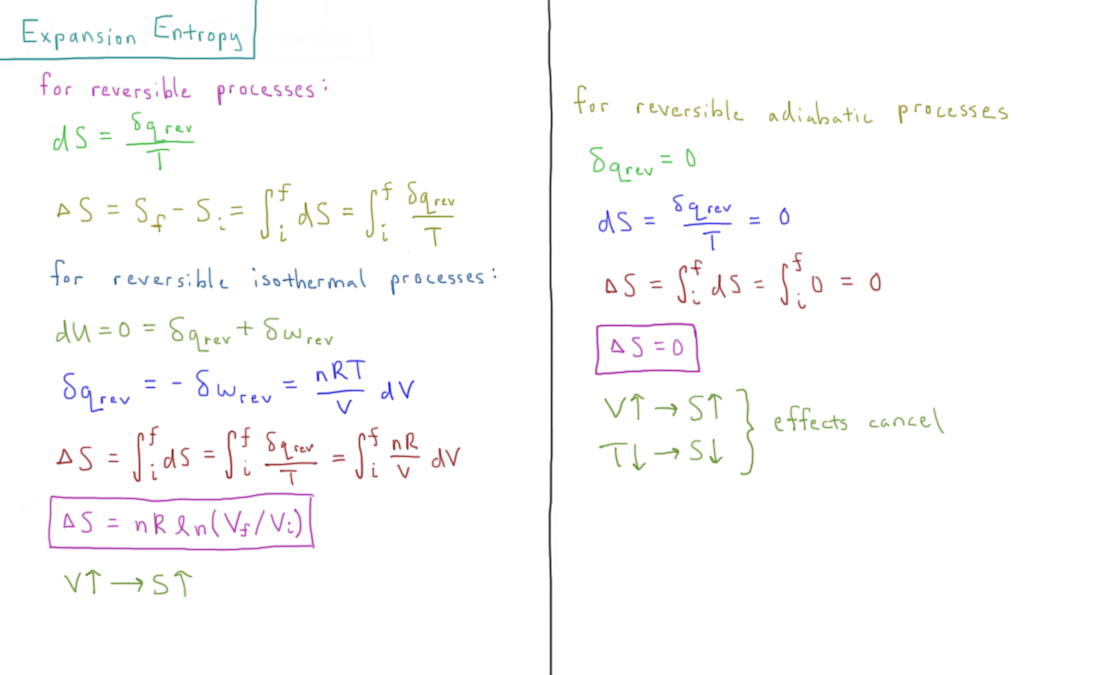 Expansion Entropy
for reversible processes:
dS = δq_rev / T
ΔS = S_f - S_i = ∫_i^f dS = ∫_i^f δq_rev / T
for reversible isothermal processes:
du = 0 = δq_rev + δw_rev
δq_rev = - δw_rev = nRT / V dV
ΔS = ∫_i^f dS = ∫_i^f δq_rev / T = ∫_i^f nR / V dV
ΔS = nR ln(V_f / V_i)
V↑ → S↑
for reversible adiabatic processes
δq_rev = 0
dS = δq_rev / T = 0
ΔS = ∫_i^f dS = ∫_i^f 0 = 0
ΔS = 0
V↑ → S↑
T↓ → S↓ } effects cancel